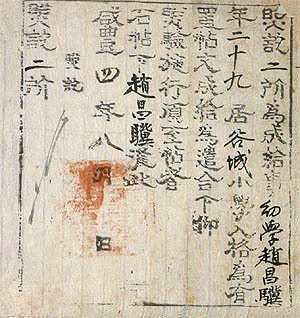 照訖二所為成給事幼學趙昌驥
年二十九居谷城小學入格為有
置帖文成給為遣合下仰
照驗施行須至帖者
右帖下趙昌驥准此
咸豊四年八月日
照訖
照訖二所